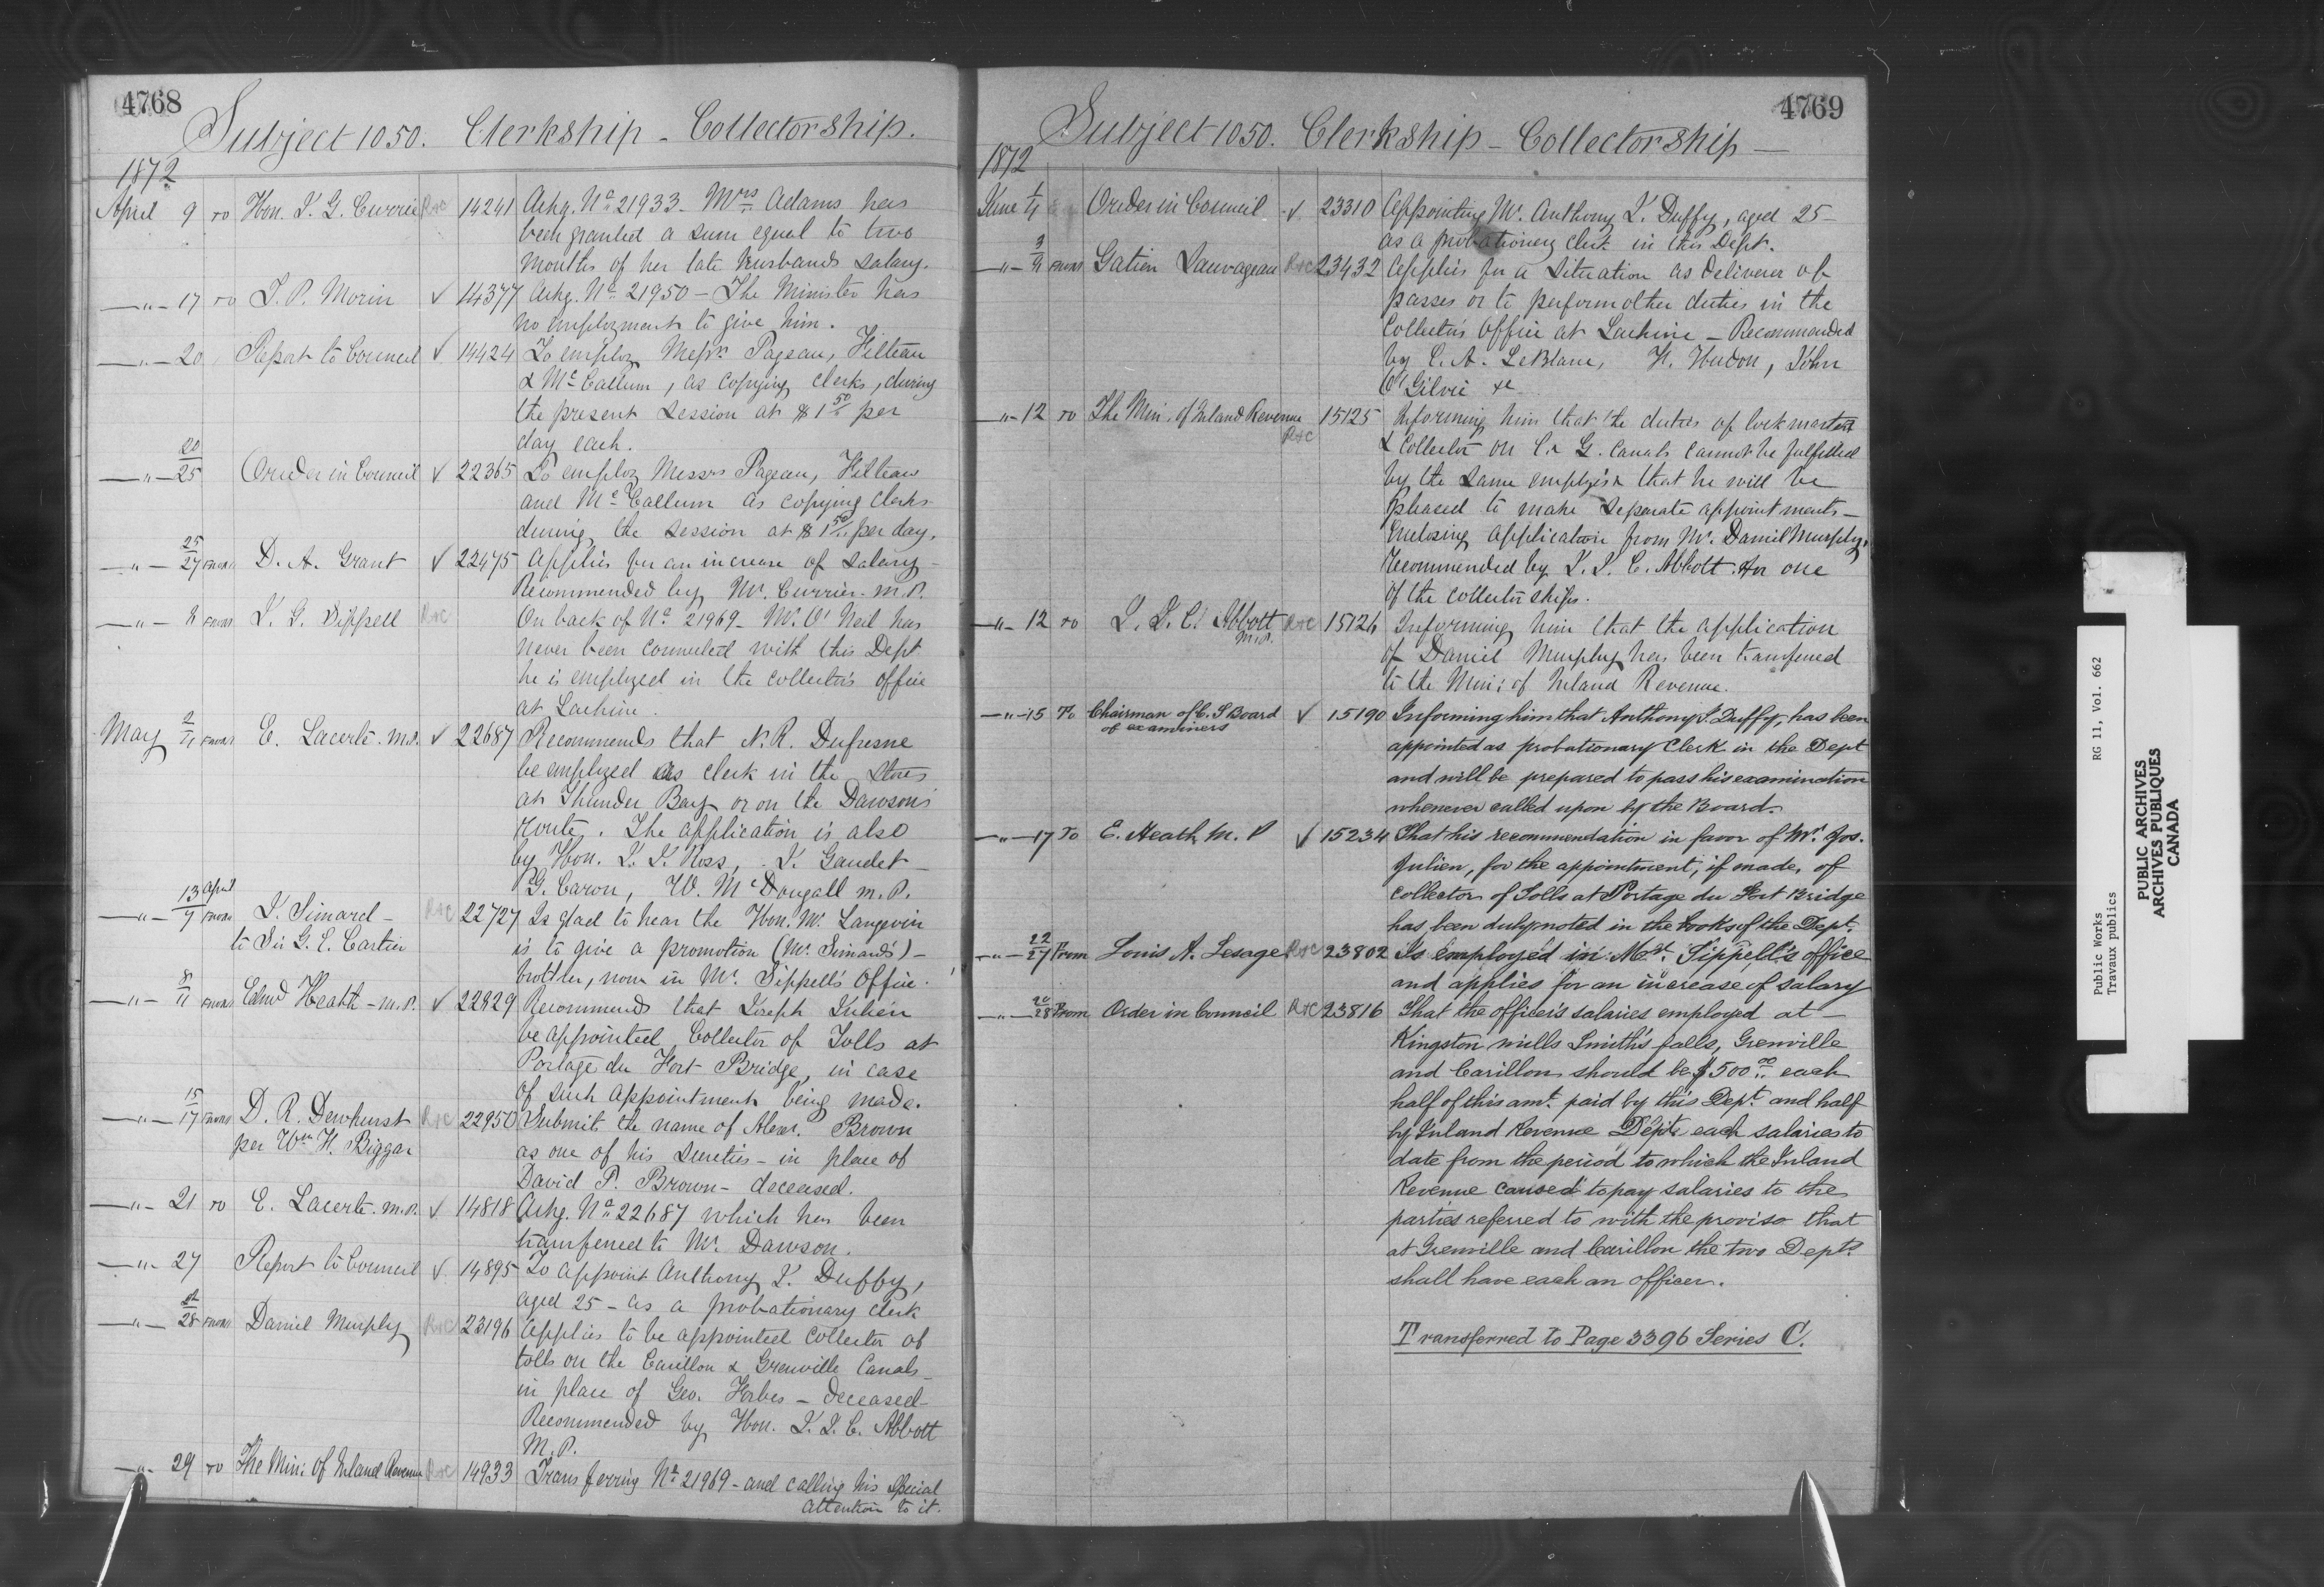 4768
Subject 1050. Clerkship - Collectorship.
1872
April 9 To Hon. J. G. Currie R&C 14241 Ackg. No 21933 - Mrs Adams has
been granted a sum equal to two
months of her late husbands salary.
—"— 17 To J. P. Morin ✓ 14377 Ackg. No 21950 - The Minister has
no employment to give him.
—"— 20 Report to Council ✓ 14424 To employ Messrs Pageau, Filteau
& McCallum, as copying clerks, during
the present session at $1 50 per
day each.
—"— 20/25 Order in Council ✓ 22365 To employ Messrs Pageau, Filteau
and McCallum as copying clerks
during the session at $1 50 per day.
—"— 25/27 From D. A. Grant ✓ 22475 Applies for an increase of salary -
Recommended by Mr. Currier. M.P.
—"— 8 From J. G. Sippell R&C On back of No 21969 - Mr O'Neil has
never been connected with this Dept
he is employed in the collector's office
at Lachine.
May 2/4 From E. Lacerte. M.P. ✓ 22687 Recommends that N. R. Dufresne
be employed as clerk in the Stores
at Thunder Bay or on the Dawson's
Route. The application is also
by Hon. J. J. Ross, J. Gaudet -
G. Caron, W. McDougall M.P.
—"— 13 April/7 From J. Simard - R&C 22727 Is glad to hear the Hon. Mr Langevin
to Sir G. E. Cartier is to give a promotion (Mr. Simard's) -
brother, now in Mr. Sippell's Office.
—"— 8/11 From Edwd Heath - M.P. ✓ 22829 Recommends that Joseph Julien
be appointed Collector of Tolls at
Portage du Fort Bridge, in case
of such appointment being made.
—"— 15/17 From D. R. Dewhurst R&C 22950 Submit the name of Alexr. Brown
per Wm H. Biggar as one of his Sureties - in place of
David P. Brown - deceased.
—"— 21 To E. Lacerte. M.P. ✓ 14818 Ackg. No 22687 which has been
transferred to Mr. Dawson.
—"— 27 Report to Council ✓ 14895 To appoint Anthony J. Duffy,
aged 25 - as a probationary clerk
—"— 28 From Daniel Murphy R&C 23196 Applies to be appointed collector of
tolls on the Carillon & Grenville Canals -
in place of Geo. Forbes - deceased -
Recommended by Hon. J. J. C. Abbott
M.P.
—"— 29 To The Min: of Inland Revenue R&C 14933 Transferring No 21969 - and calling his special
attention to it.
4769
Subject 1050. Clerkship - Collectorship —
1872
June 1/4 Order in Council ✓ 23310 Appointing Mr. Anthony J. Duffy, aged 25 -
as a probationary clerk in this Dept.
—"— 3/4 From Gatien Sauvageau R&C 23432 Applies for a situation as deliverer of
passes or to perform other duties in the
Collector's Office at Lachine - Recommended
by C. A. LeBlanc, H. Hudon, John
O'Gilvie &c
—"— 12 To The Min. of Inland Revenue R&C 15125 Informing him that the duties of lockmaster
& Collector on C. & G. canals cannot be fulfilled
by the same employé & that he will be
pleased to make separate appointments -
Enclosing application from Mr. Daniel Murphy,
recommended by J. J. C. Abbott for one
of the collectorships.
—"— 12 To J. J. C. Abbott M.P. R&C 15126 Informing him that the application
of Daniel Murphy has been transferred
to the Min: of Inland Revenue.
—"— 15 To Chairman of C. S Board ✓ 15190 Informing him that Anthony J. Duffy, has been
of examiners appointed as probationary Clerk in the Dept
and will be prepared to pass his examination
whenever called upon by the Board.
—"— 17 To E. Heath M. P ✓ 15234 That his recommendation in favor of Mr. Jos.
Julien, for the appointment, if made, of
collector of Tolls at Portage du Fort Bridge
has been duly noted in the books of the Dept.
—"— 22/27 From Louis A. Lesage R&C 23802 Is employed in Mr. Sippell's office
and applies for an increase of salary
—"— 20/28 From Order in Council R&C 23816 That the officer's salaries employed at -
Kingston mills Smith's falls, Grenville
and Carillon should be $500 00 each
half of this amt. paid by this Dept. and half
by Inland Revenue Dept. each salaries to
date from the period to which the Inland
Revenue caused to pay salaries to the
parties referred to with the proviso that
at Grenville and Carillon the two Depts.
shall have each an officer.
Transferred to Page 3396 Series C.
Public Works RG 11, Vol. 662
Travaux publics
PUBLIC ARCHIVES
ARCHIVES PUBLIQUES
CANADA